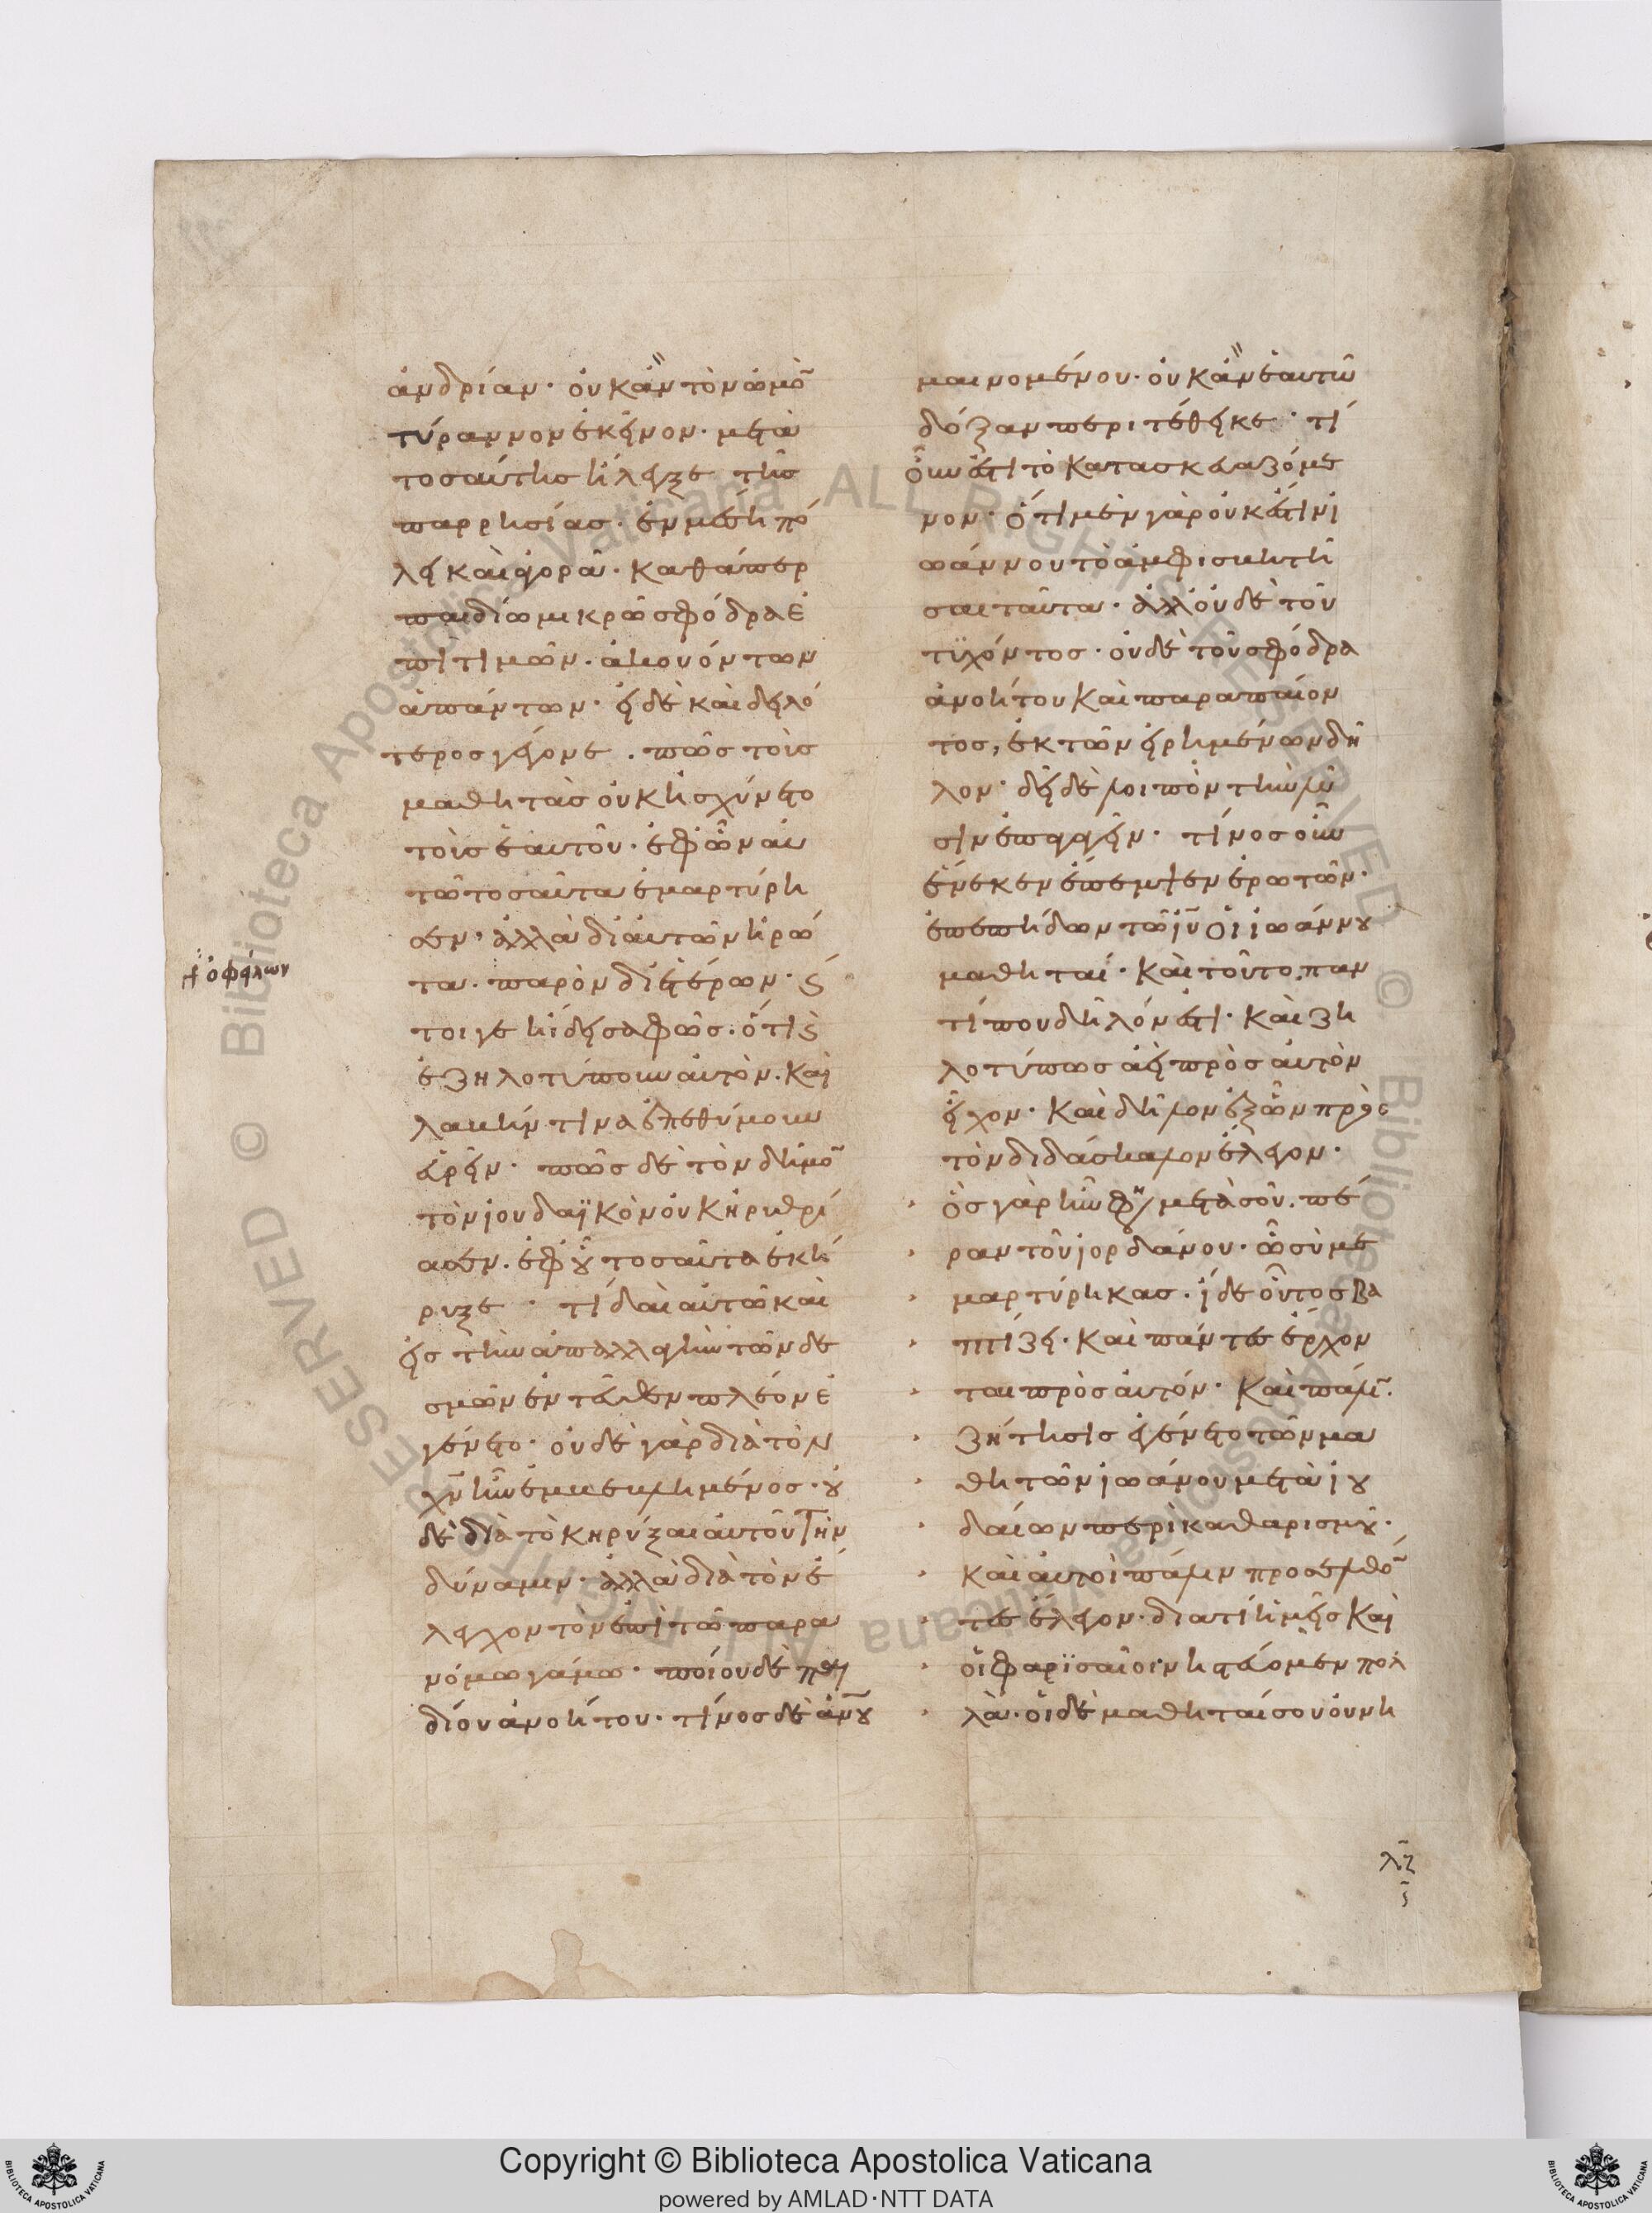 ἀνδρίαν· οὐκ ἂν τὸν ὠμὸ̄
τύραννον ἐκεῖνον· μετὰ
τοσαύτης ἤλεγξε τῆς
παρρησίας· ἐν μέσῃ πό
λει καὶ ἀγορᾶ· καθάπερ
παιδίω μικρῶ σφόδρα ἐ
πιτιμῶν· ἀκουόντων
ἁπάντων· εἰ δὲ καὶ δειλό
τερος γέγονε· πῶς τοὺς
μαθητὰς οὐκ ἠσχύνετο
τοὺς ἑαυτοῦ· ἐφ ὧν αὐ
τῶ τοσαῦτα ἐμαρτύρη
σεν· ἀλλὰ δι αὐτῶν ἠρώ
τα· παρὸν δι ἑτέρων· ϗ
ὀφείλων
τοι γε ἤδει σαφῶς· ὅτι ϗ
ἐζηλοτύπουν αὐτὸν· καὶ
λαβήν τινα ἐπεθύμουν
εὑρεῖν· πῶς δὲ τὸν δῆμο̄
τὸν ἰουδαϊκὸν οὐκ ἠρυθρί
ασεν· ἐφ οὗ τοσαῦτα ἐκή
ρυξε· τί δαὶ αὐτῶ καὶ
εἰς τὴν ἀπαλλαγὴν τῶν δε
σμῶν ἐντεῦθεν πλέον ἐ
γένετο· οὐδὲ γὰρ διὰ τὸν
χν̄ ἦν ἐμβεβλημένος· οὐ
δὲ διὰ τὸ κηρύξαι αὐτοῦ τὴν
δύναμιν· ἀλλὰ διὰ τὸν ἔ
λεγχον τὸν ἐπὶ τῶ παρα
νόμω γάμω· ποίου δὲ παι
δίου ἀνοήτου· τίνος δὲ ἀν̄ου
μαινομένου· οὐκ ἂν ἑαυτῶ
δόξαν περιτέθεικε· τί
οὖν ἐστὶ τὸ κατασκευαζόμε
νον· ὅτι μὲν γὰρ οὐκ ἔστιν ἰ
ωάννου τὸ ἀμφισβητῆ
σαι ταῦτα· ἀλλ οὐδὲ τοῦ
τυχόντος· οὐδὲ τοῦ σφόδρα
ἀνοήτου καὶ παραπαίον
τος, ἐκ τῶν εἰρημένων δῆ
λον· δεῖ δὲ λοιπὸν τὴν λύ
σιν ἐπαγαγεῖν· τίνος οὖν
ἕνεκεν ἔπεμψεν ἐρωτῶν·
ἐπεπήδων τῶ ἰῡ οἱ ἰωάννου
μαθηταί· καὶ τοῦτο παν
τί που δῆλόν ἐστι· καὶ ζη
λοτύπως ἀεὶ πρὸς αὐτὸν
εἶχον· καὶ δῆλον ἐξ ὧν πρὸς
τὸν διδάσκαλον ἔλεγον·
ὃς γὰρ ἦν φη μετὰ σοῦ· πέ
ραν τοῦ ἰορδάνου· ὧ σὺ με
μαρτύρηκας· ἴδε οὗτος βα
πτίζει· καὶ πάντες ἔρχον
ται πρὸς αὐτόν· καὶ πάλῑ·
ζήτησις ἐγένετο τῶν μα
θητῶν ἰωάνου μετὰ ἰου
δαίων περὶ καθαρισμοῦ·
καὶ αὐτοὶ πάλιν προσελθό̄
τες ἔλεγον· διατί ἡμεῖς καὶ
οἱ φαρισαῖοι νηστεύομεν πολ
λὰ· οἱ δὲ μαθηταί σου οὐ νη
λζ̄
Copyright © Biblioteca Apostolica Vaticana
powered by AMLAD·NTT DATA